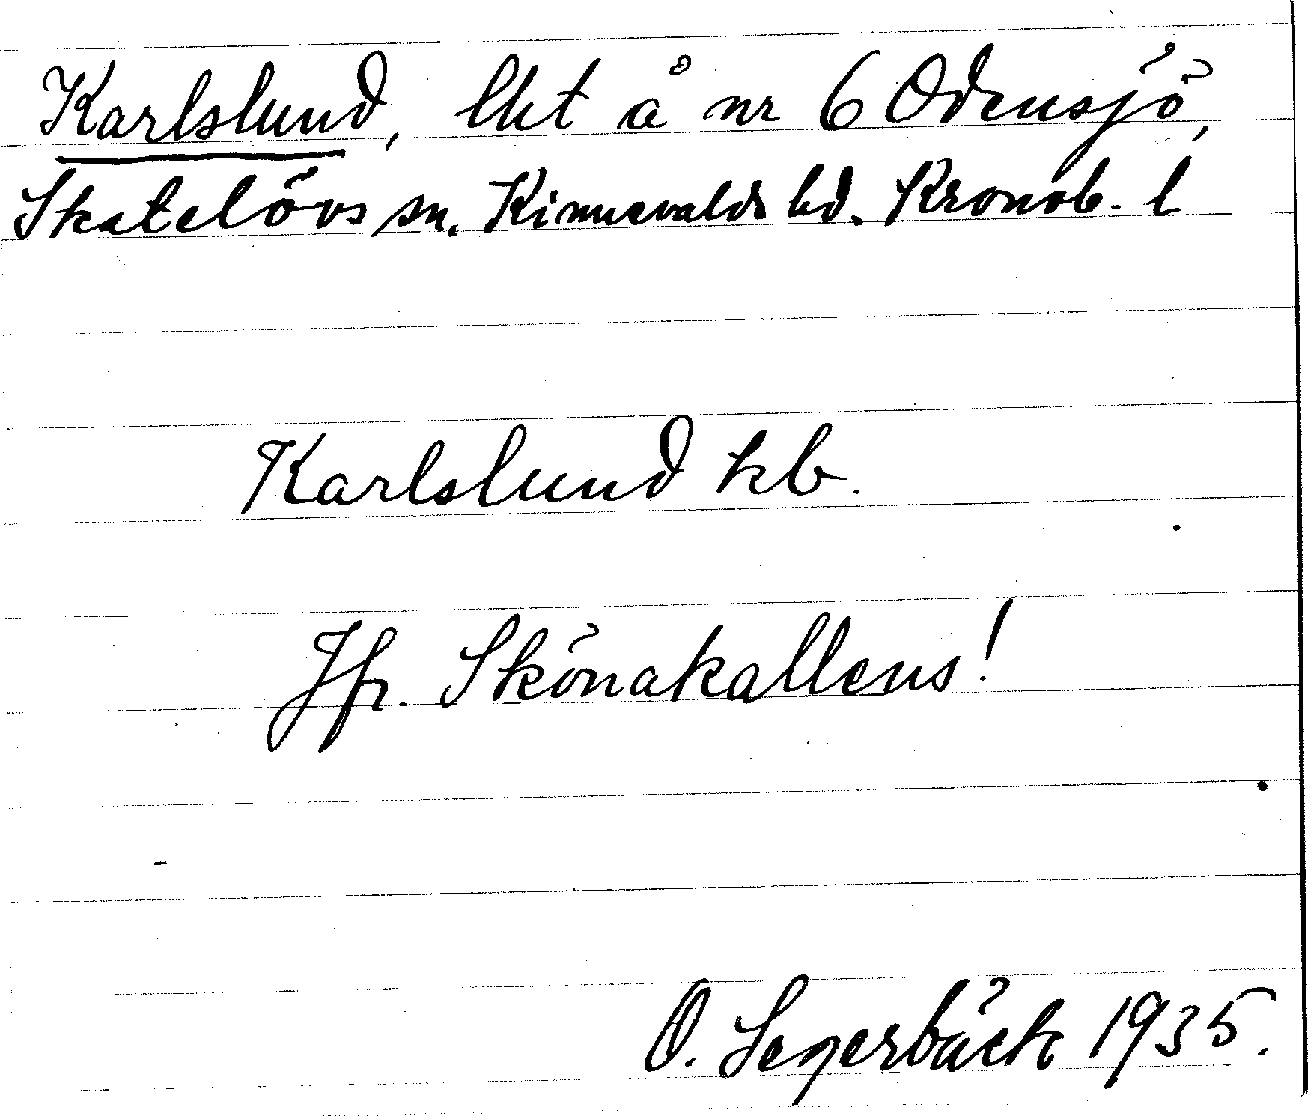 Karlslund, lht å nr 6 Odensjö,
Skatelövs sn. Kinnevalds hd. Kronob. l
Karlslund kb.
Jfr. Skönakallens!
O. Segerbäck 1935.